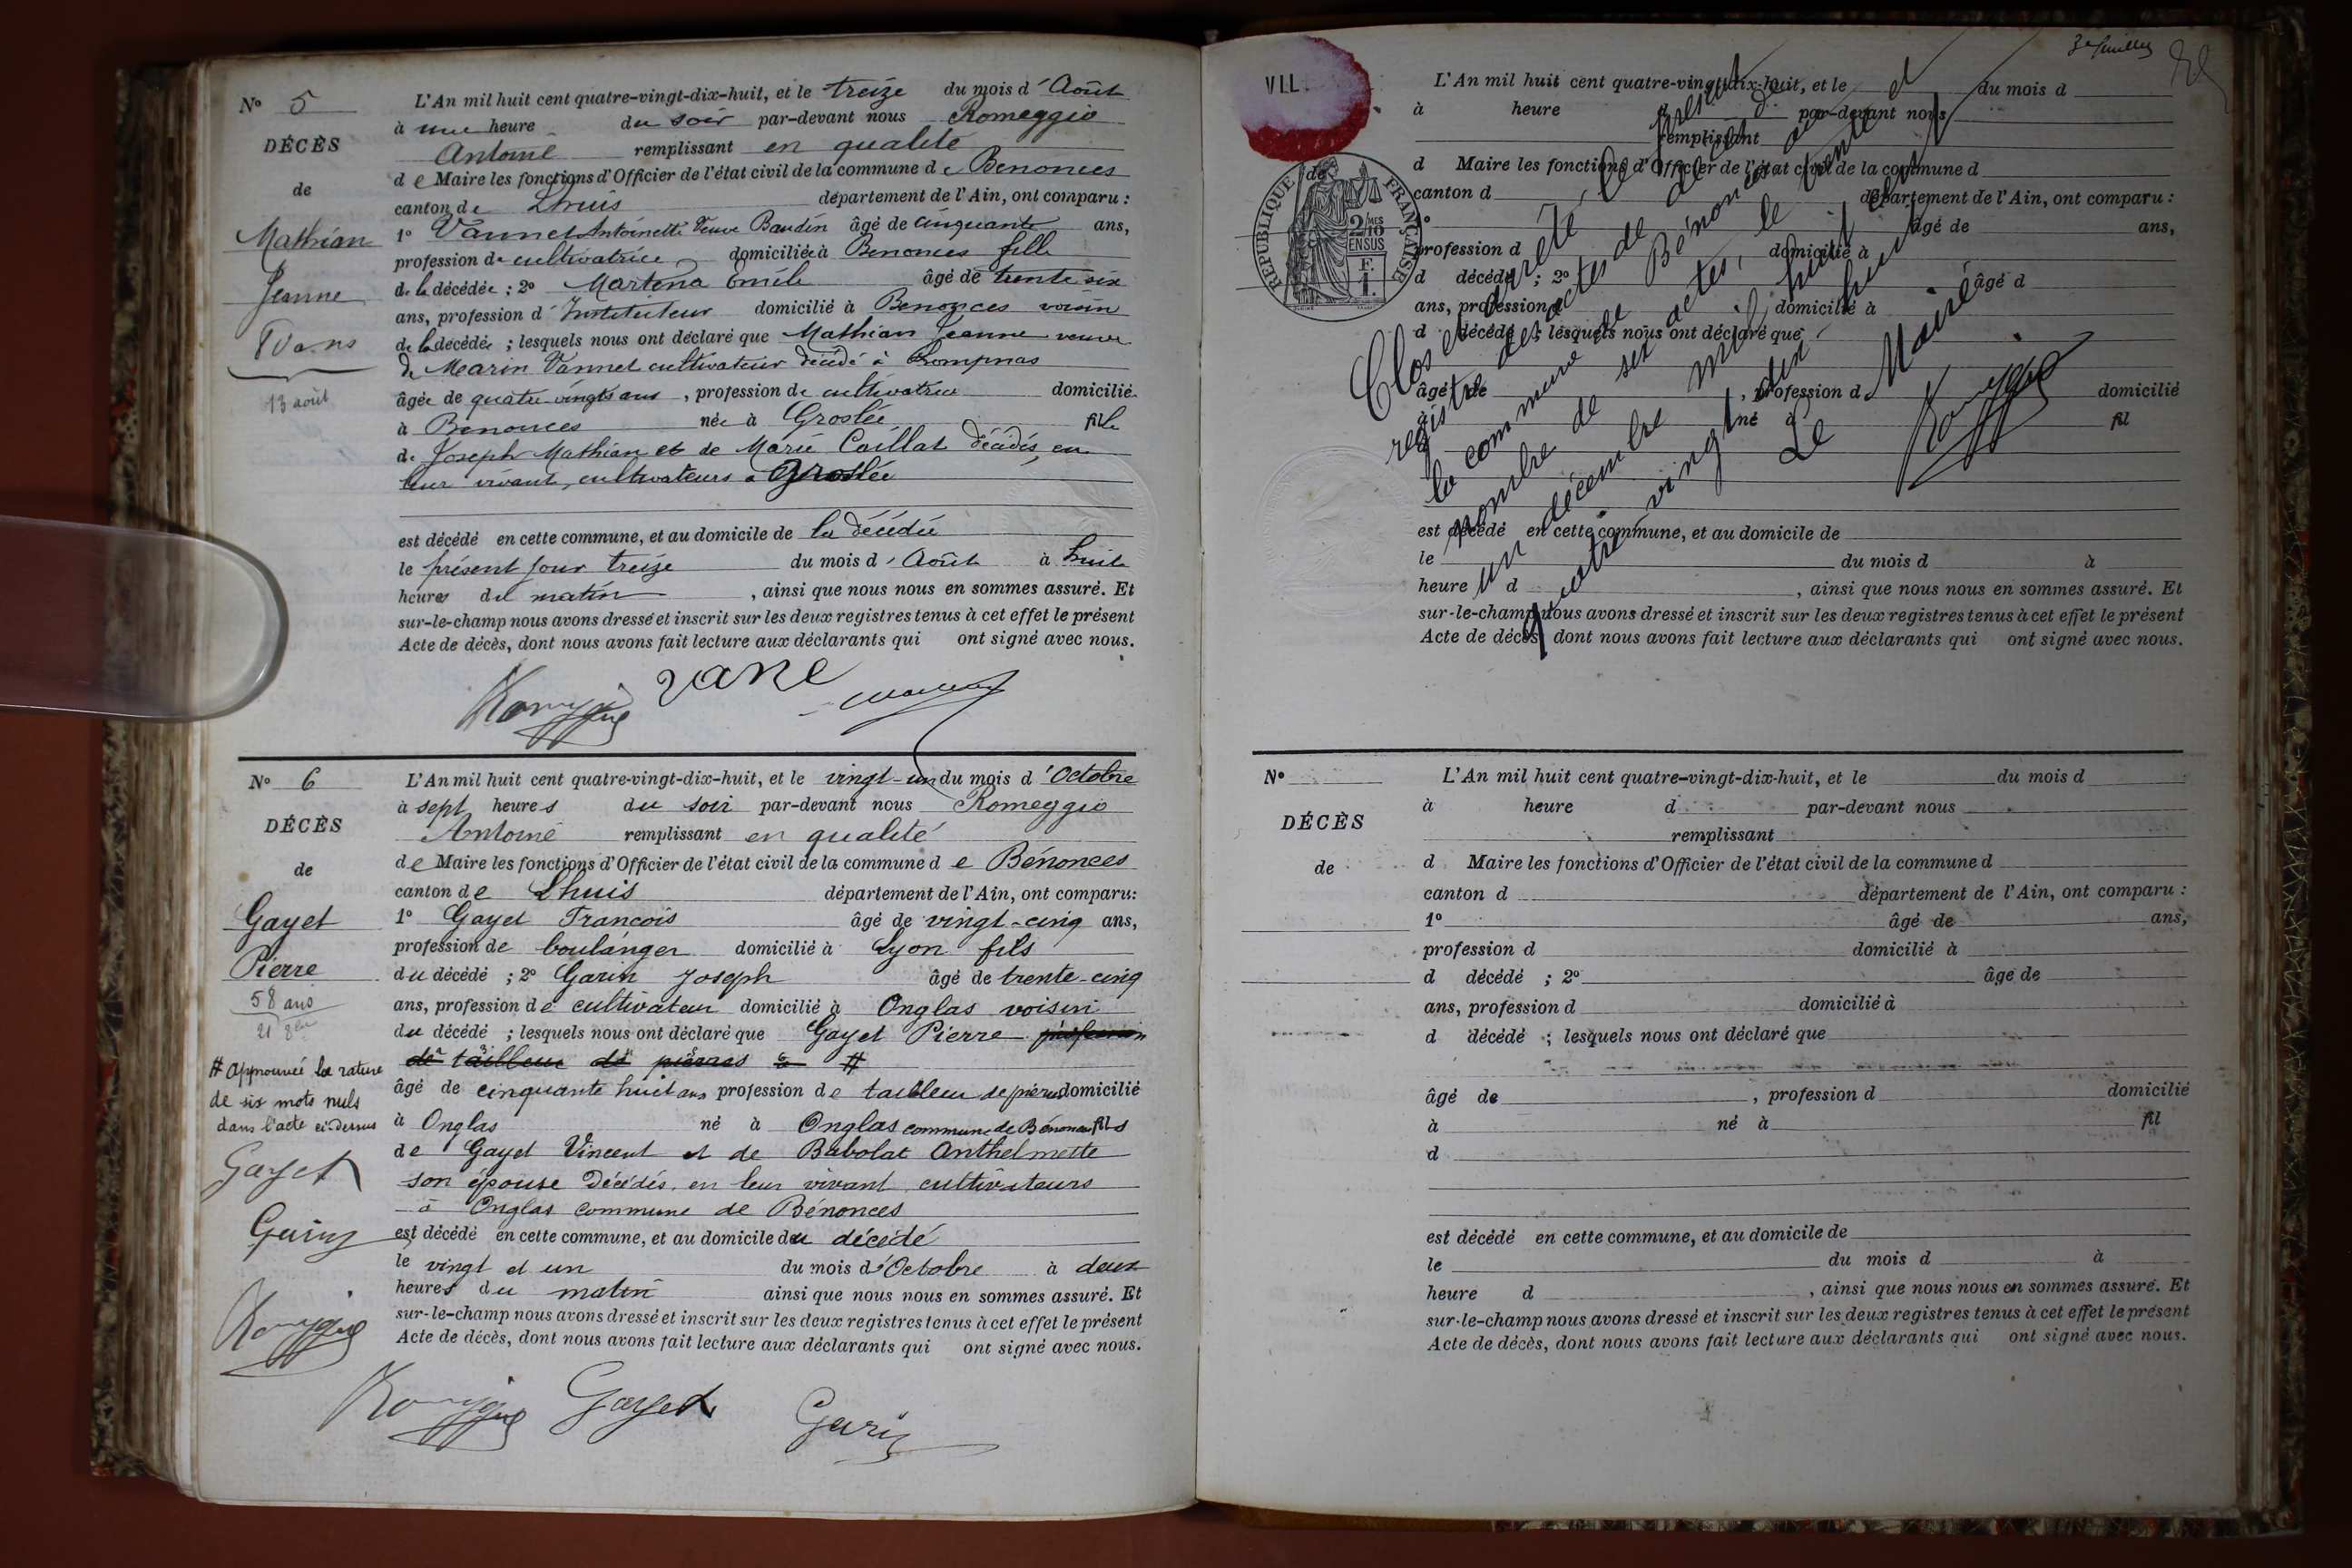 N° 5
DÉCÈS
de
Mathian
Jeanne
80 ans
13 août
L'An mil huit cent quatre-vingt-dix-huit, et le treize du mois d'Août
à une heure du soir par-devant nous Romeggio
Antoine remplissant en qualité
de Maire les fonctions d'Officier de l'état civil de la commune de Benonces
canton de Lhuis département de l'Ain, ont comparu :
1° Vannet Antoinette Veuve Baudin âgé de cinquante ans,
profession de cultivatrice domiciliée à Benonces fille
de la décédée ; 2° Martena Emile âgé de trente six
ans, profession d'Instituteur domicilié à Benonces voisin
de la décédée ; lesquels nous ont déclaré que Mathian Jeanne veuve
de Marin Vannet cultivateur décédé à Lompnas
âgée de quatre-vingts ans, profession de cultivatrice domicilié
à Benonces née à Groslée fille
de Joseph Mathian et de Marie Caillat décédés, en
leur vivant, cultivateurs à Groslée
est décédé en cette commune, et au domicile de la décédée
le présent jour treize du mois d'Août à huit
heures du matin, ainsi que nous nous en sommes assuré. Et
sur-le-champ nous avons dressé et inscrit sur les deux registres tenus à cet effet le présent
Acte de décès, dont nous avons fait lecture aux déclarants qui ont signé avec nous.
Romeggio vane
N° 6
DÉCÈS
de
Gayet
Pierre
58 ans
21 8bre
# Approuvé la rature
de six mots nuls
dans l'acte ci-dessus
Gayet
Garin
Romeggio
L'An mil huit cent quatre-vingt-dix-huit, et le vingt-un du mois d'Octobre
à sept heures du soir par-devant nous Romeggio
Antoine remplissant en qualité
de Maire les fonctions d'Officier de l'état civil de la commune de Bénonces
canton de Lhuis département de l'Ain, ont comparu :
1° Gayet Francois âgé de vingt-cinq ans,
profession de boulanger domicilié à Lyon fils
du décédé ; 2° Garin Joseph âgé de trente-cinq
ans, profession de cultivateur domicilié à Onglas voisin
du décédé ; lesquels nous ont déclaré que Gayet Pierre profession
de tailleur de pierres à #
âgé de cinquante huit ans profession de tailleur de pierres domicilié
à Onglas né à Onglas commune de Bénonces fils
de Gayet Vincent et de Babolat Anthelmette
son épouse décédés en leur vivant cultivateurs
à Onglas commune de Bénonces
est décédé en cette commune, et au domicile du décédé
le vingt et un du mois d'Octobre à deux
heures du matin ainsi que nous nous en sommes assuré. Et
sur-le-champ nous avons dressé et inscrit sur les deux registres tenus à cet effet le présent
Acte de décès, dont nous avons fait lecture aux déclarants qui ont signé avec nous.
Romeggio Gayet Garin
3e feuillet
VII
RÉPUBLIQUE FRANÇAISE
2/10 MES
EN SUS
F.
1.
de
L'An mil huit cent quatre-vingt-dix-huit, et le du mois d
à heure d par-devant nous
remplissant
d Maire les fonctions d'Officier de l'état civil de la commune d
canton d département de l'Ain, ont comparu :
1° âgé de ans,
profession d domicilié à
d décédé ; 2° âgé d
ans, profession d domicilié à
d décédé ; lesquels nous ont déclaré que
âgé de , profession d domicilié
à né à fil
d
est décédé en cette commune, et au domicile de
le du mois d à
heure d , ainsi que nous nous en sommes assuré. Et
sur-le-champ nous avons dressé et inscrit sur les deux registres tenus à cet effet le présent
Acte de décès, dont nous avons fait lecture aux déclarants qui ont signé avec nous.
Clos et arrêté, le présent
registre des actes de décès de
la commune de Bénonces au
nombre de six actes, le trente et
un décembre mil huit cent
quatre vingt dix huit
Le Maire
Romeggio
N°
DÉCÈS
de
L'An mil huit cent quatre-vingt-dix-huit, et le du mois d
à heure d par-devant nous
remplissant
d Maire les fonctions d'Officier de l'état civil de la commune d
canton d département de l'Ain, ont comparu :
1° âgé de ans,
profession d domicilié à
d décédé ; 2° âgé de
ans, profession d domicilié à
d décédé ; lesquels nous ont déclaré que
âgé de , profession d domicilié
à né à fil
d
est décédé en cette commune, et au domicile de
le du mois d à
heure d , ainsi que nous nous en sommes assuré. Et
sur-le-champ nous avons dressé et inscrit sur les deux registres tenus à cet effet le présent
Acte de décès, dont nous avons fait lecture aux déclarants qui ont signé avec nous.